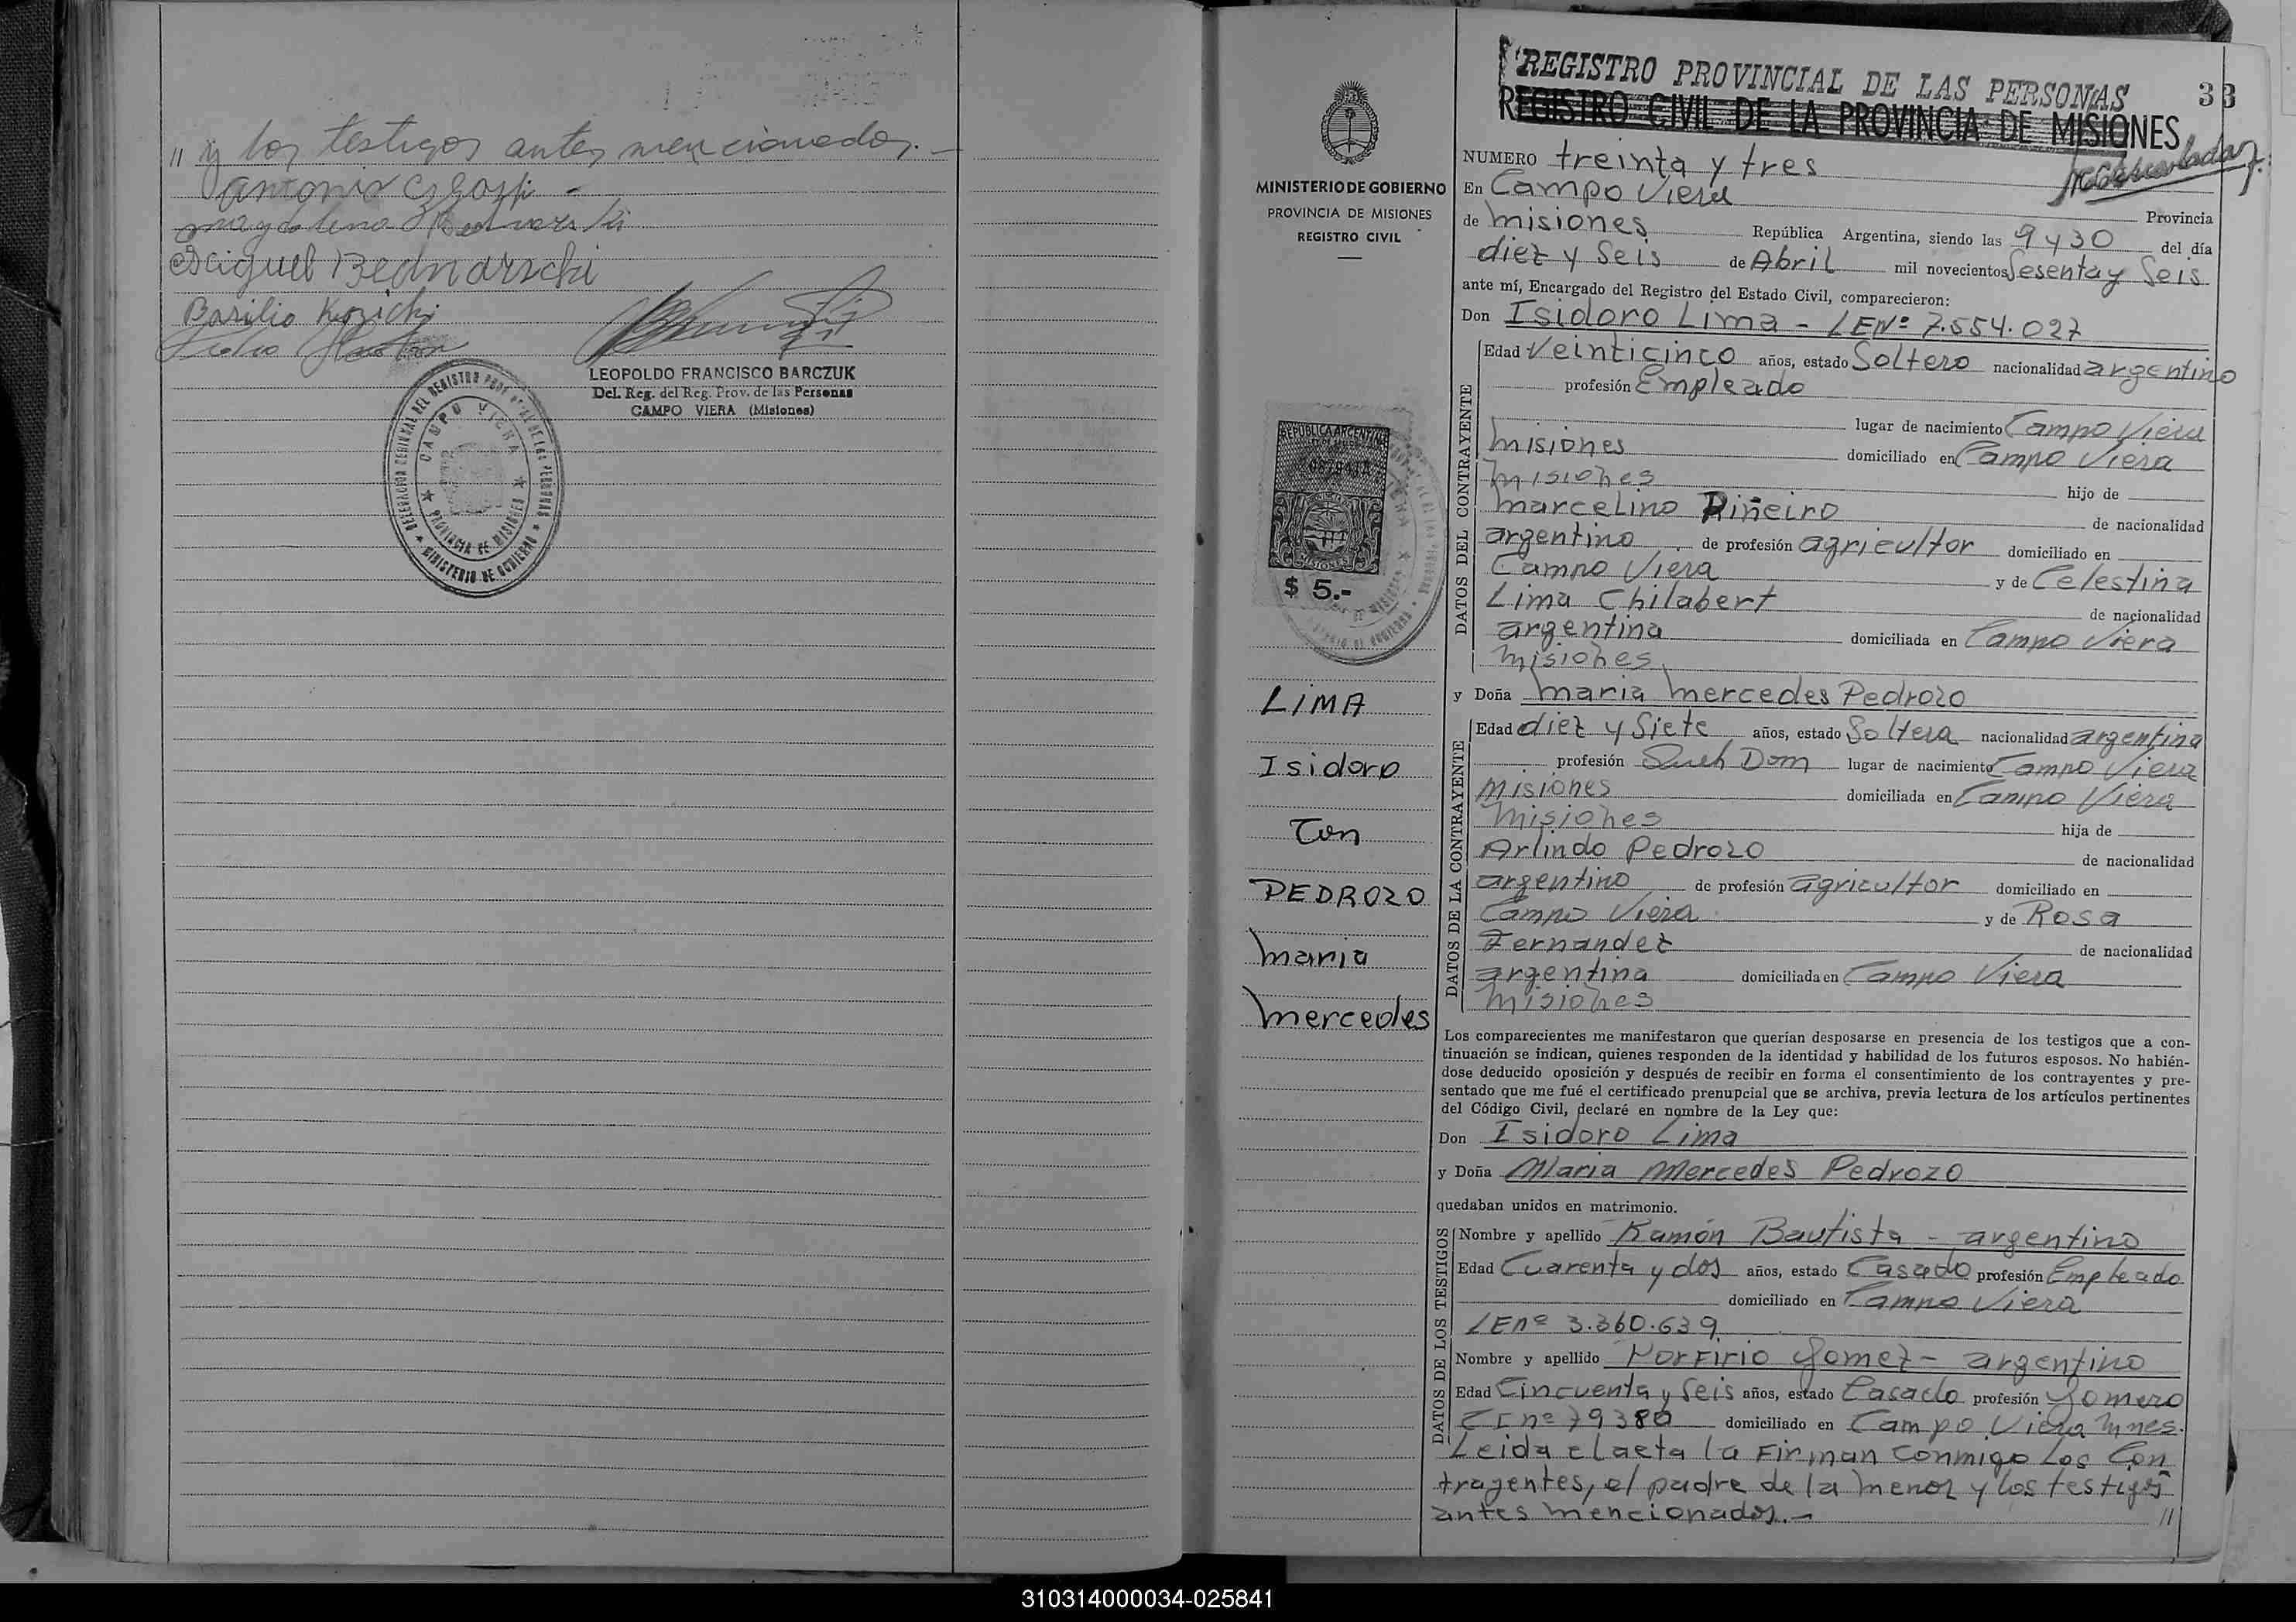 // y los testigos antes mencionados.-
Antonio
Magdalena Bednarski
Miguel Bednarski
Basilio Kozicki
Pedro
LEOPOLDO FRANCISCO BARCZUK
Del. Reg. del Reg. Prov. de las Personas
CAMPO VIERA (Misiones)
CAMPO VIERA
PROVINCIA DE MISIONES
MINISTERIO DE GOBIERNO
MINISTERIO DE GOBIERNO
PROVINCIA DE MISIONES
REGISTRO CIVIL
REPUBLICA ARGENTINA
MISIONES
$ 5.-
LIMA
Isidoro
Con
PEDROZO
Maria
Mercedes
REGISTRO PROVINCIAL DE LAS PERSONAS
33
REGISTRO CIVIL DE LA PROVINCIA DE MISIONES
NUMERO treinta y tres
En Campo Viera
Provincia
de Misiones República Argentina, siendo las 9 y 30 del día
diez y Seis de Abril mil novecientos Sesenta y Seis
ante mí, Encargado del Registro del Estado Civil, comparecieron:
Don Isidoro Lima - LENº 7.554.027
DATOS DEL CONTRAYENTE
Edad Veinticinco años, estado Soltero nacionalidad argentino
profesión Empleado
lugar de nacimiento Campo Viera
Misiones domiciliado en Campo Viera
Misiones hijo de
Marcelino Piñeiro de nacionalidad
argentino de profesión agricultor domiciliado en
Campo Viera y de Celestina
Lima Chilabert de nacionalidad
argentina domiciliada en Campo Viera
Misiones
y Doña Maria Mercedes Pedrozo
DATOS DE LA CONTRAYENTE
Edad diez y Siete años, estado Soltera nacionalidad argentina
profesión Dom lugar de nacimiento Campo Viera
Misiones domiciliada en Campo Viera
Misiones hija de
Arlindo Pedrozo de nacionalidad
argentino de profesión agricultor domiciliado en
Campo Viera y de Rosa
Fernandez de nacionalidad
argentina domiciliada en Campo Viera
Misiones
Los comparecientes me manifestaron que querían desposarse en presencia de los testigos que a con-
tinuación se indican, quienes responden de la identidad y habilidad de los futuros esposos. No habién-
dose deducido oposición y después de recibir en forma el consentimiento de los contrayentes y pre-
sentado que me fué el certificado prenupcial que se archiva, previa lectura de los artículos pertinentes
del Código Civil, declaré en nombre de la Ley que:
Don Isidoro Lima
y Doña Maria Mercedes Pedrozo
quedaban unidos en matrimonio.
DATOS DE LOS TESTIGOS
Nombre y apellido Ramón Bautista - argentino
Edad Cuarenta y dos años, estado Casado profesión Empleado
domiciliado en Campo Viera
LEnº 3.360.639
Nombre y apellido Porfirio Gomez - argentino
Edad Cincuenta y Seis años, estado Casado profesión Gomero
CInº 79380 domiciliado en Campo Viera Mnes.
Leida el acta la Firman conmigo los Con
trayentes, el padre de la menor y los testigos
antes mencionados.- //
310314000034-025841